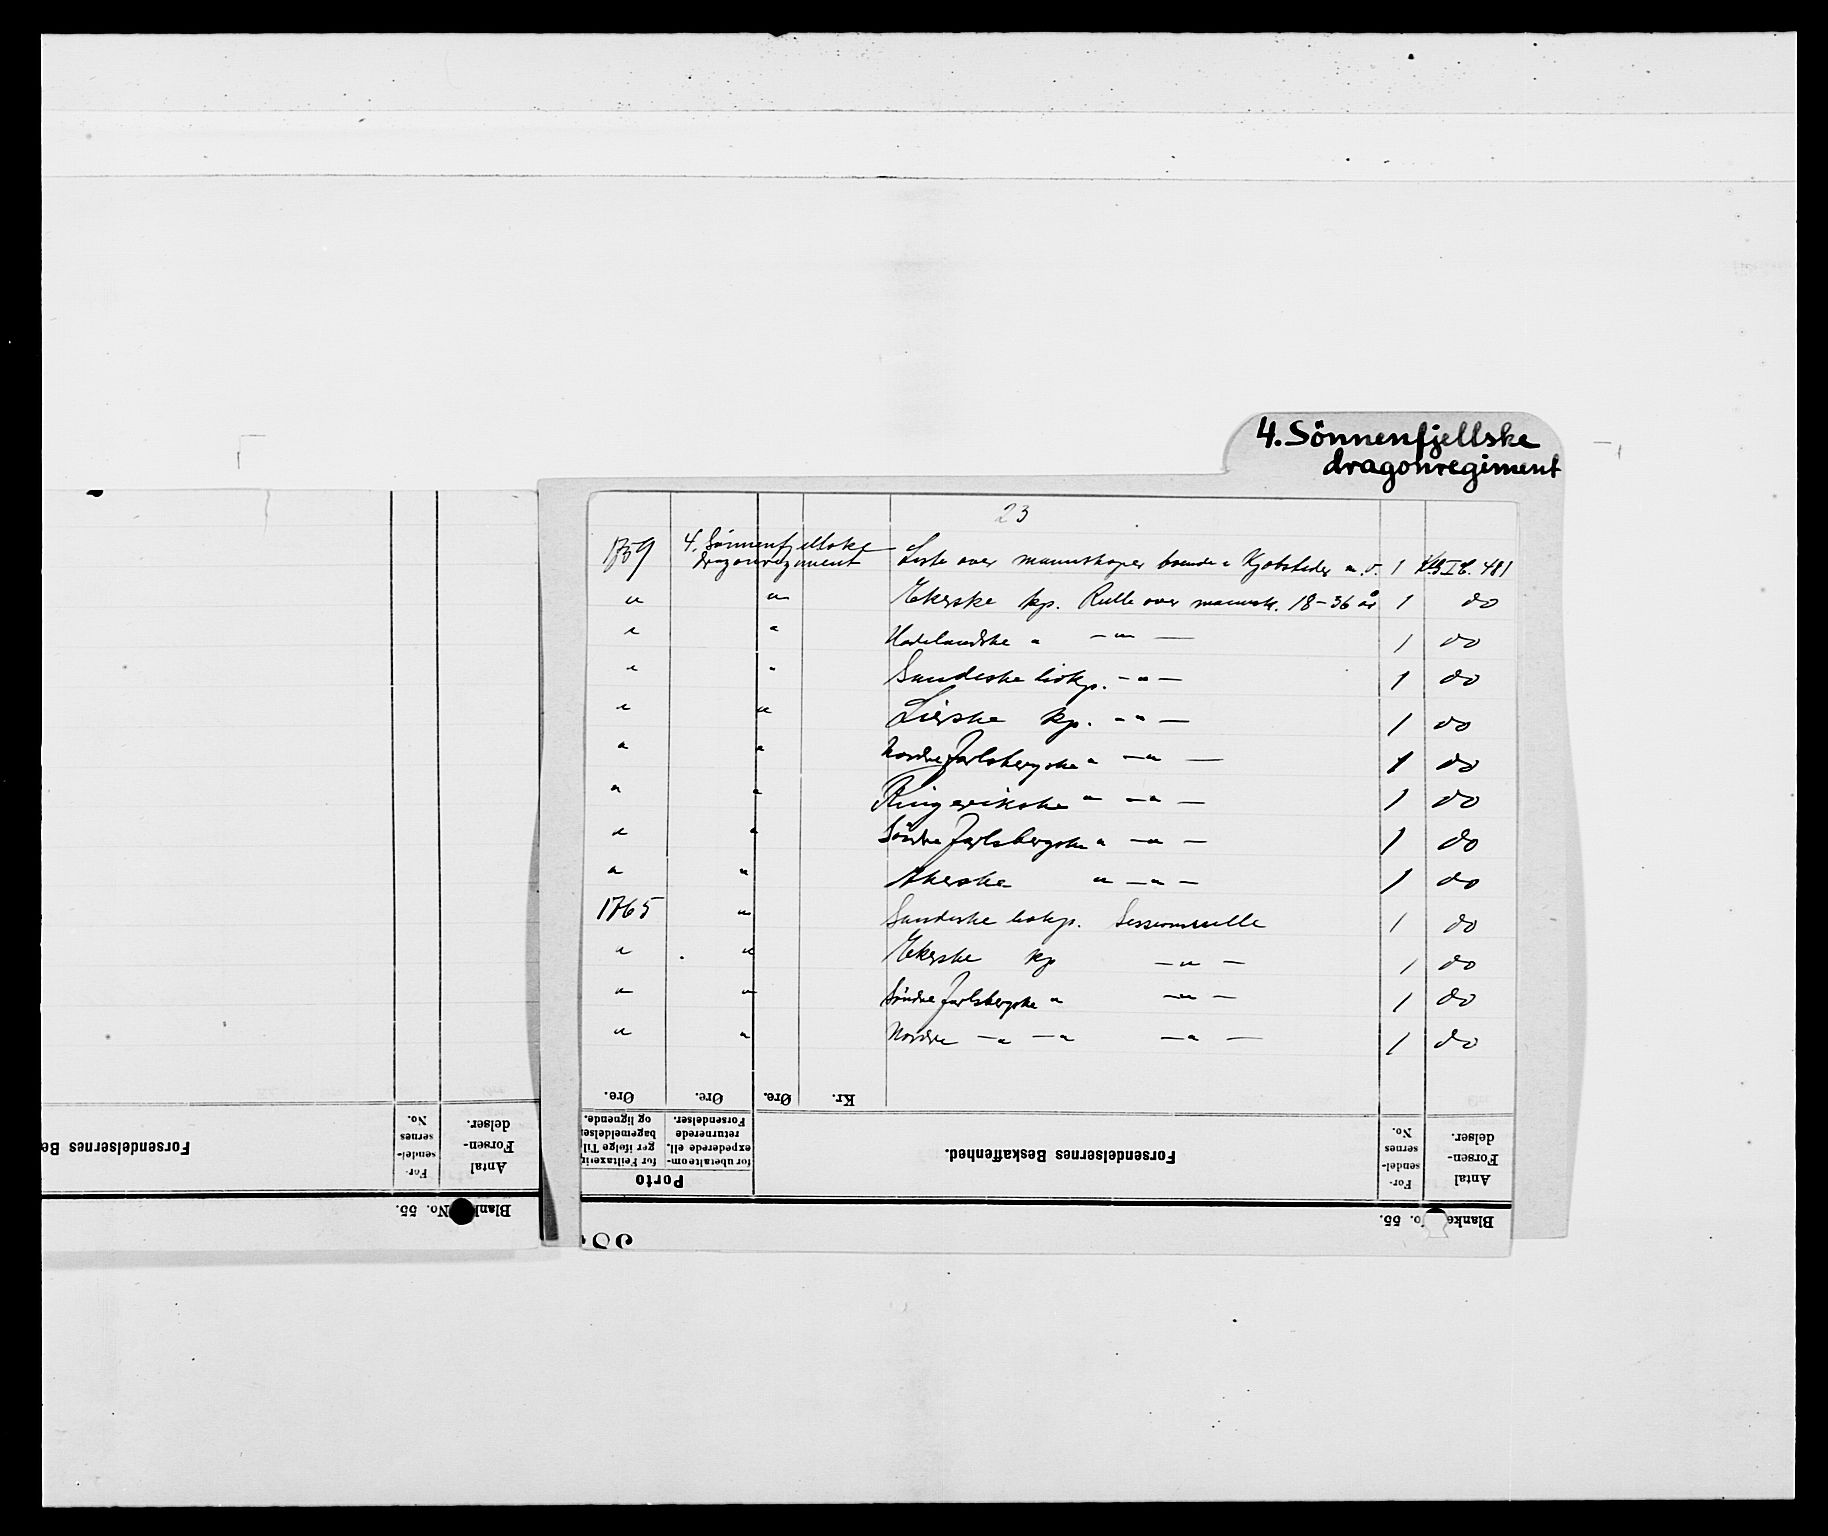 4. Sönnenfjellske
dragonregiment
23
1759 4. Sönnenfjellske dragonregiment Liste over mannskaper boende i Kjøbsteder m.v. 1 481
" " Ekerske kp. Rulle over mannsk. 18-36 år 1 do
" " Hadelandske " — " — 1 do
" " Sandeske livkp. — " — 1 do
" " Lierske kp. — " — 1 do
" " Nordre Jarlsbergske " — " — 1 do
" " Ringerikske " — " — 1 do
" " Söndre Jarlsbergske " — " — 1 do
" " Akerske " — " — 1 do
1765 " Sandeske livkp. Sessionsrulle 1 do
" " Ekerske kp — " — 1 do
" " Söndre Jarlsbergske " — " — 1 do
" " Nordre — " — " — " — 1 do
Øre. Øre. Øre. Kr.
Porto
for ubetalte om-
expederede ell.
returnerede
Forsendelser.
for Feiltaxerin
ger ifølge Til
bagemeldelse
og lignende.
Forsendelsernes Beskaffenhed.
For-
sendel-
sernes
No.
Antal
Forsen-
delser.
Blanke No. 55.
Forsendelsernes Be
For-
sendel-
sernes
No.
Antal
Forsen-
delser.
Blanke No. 55.